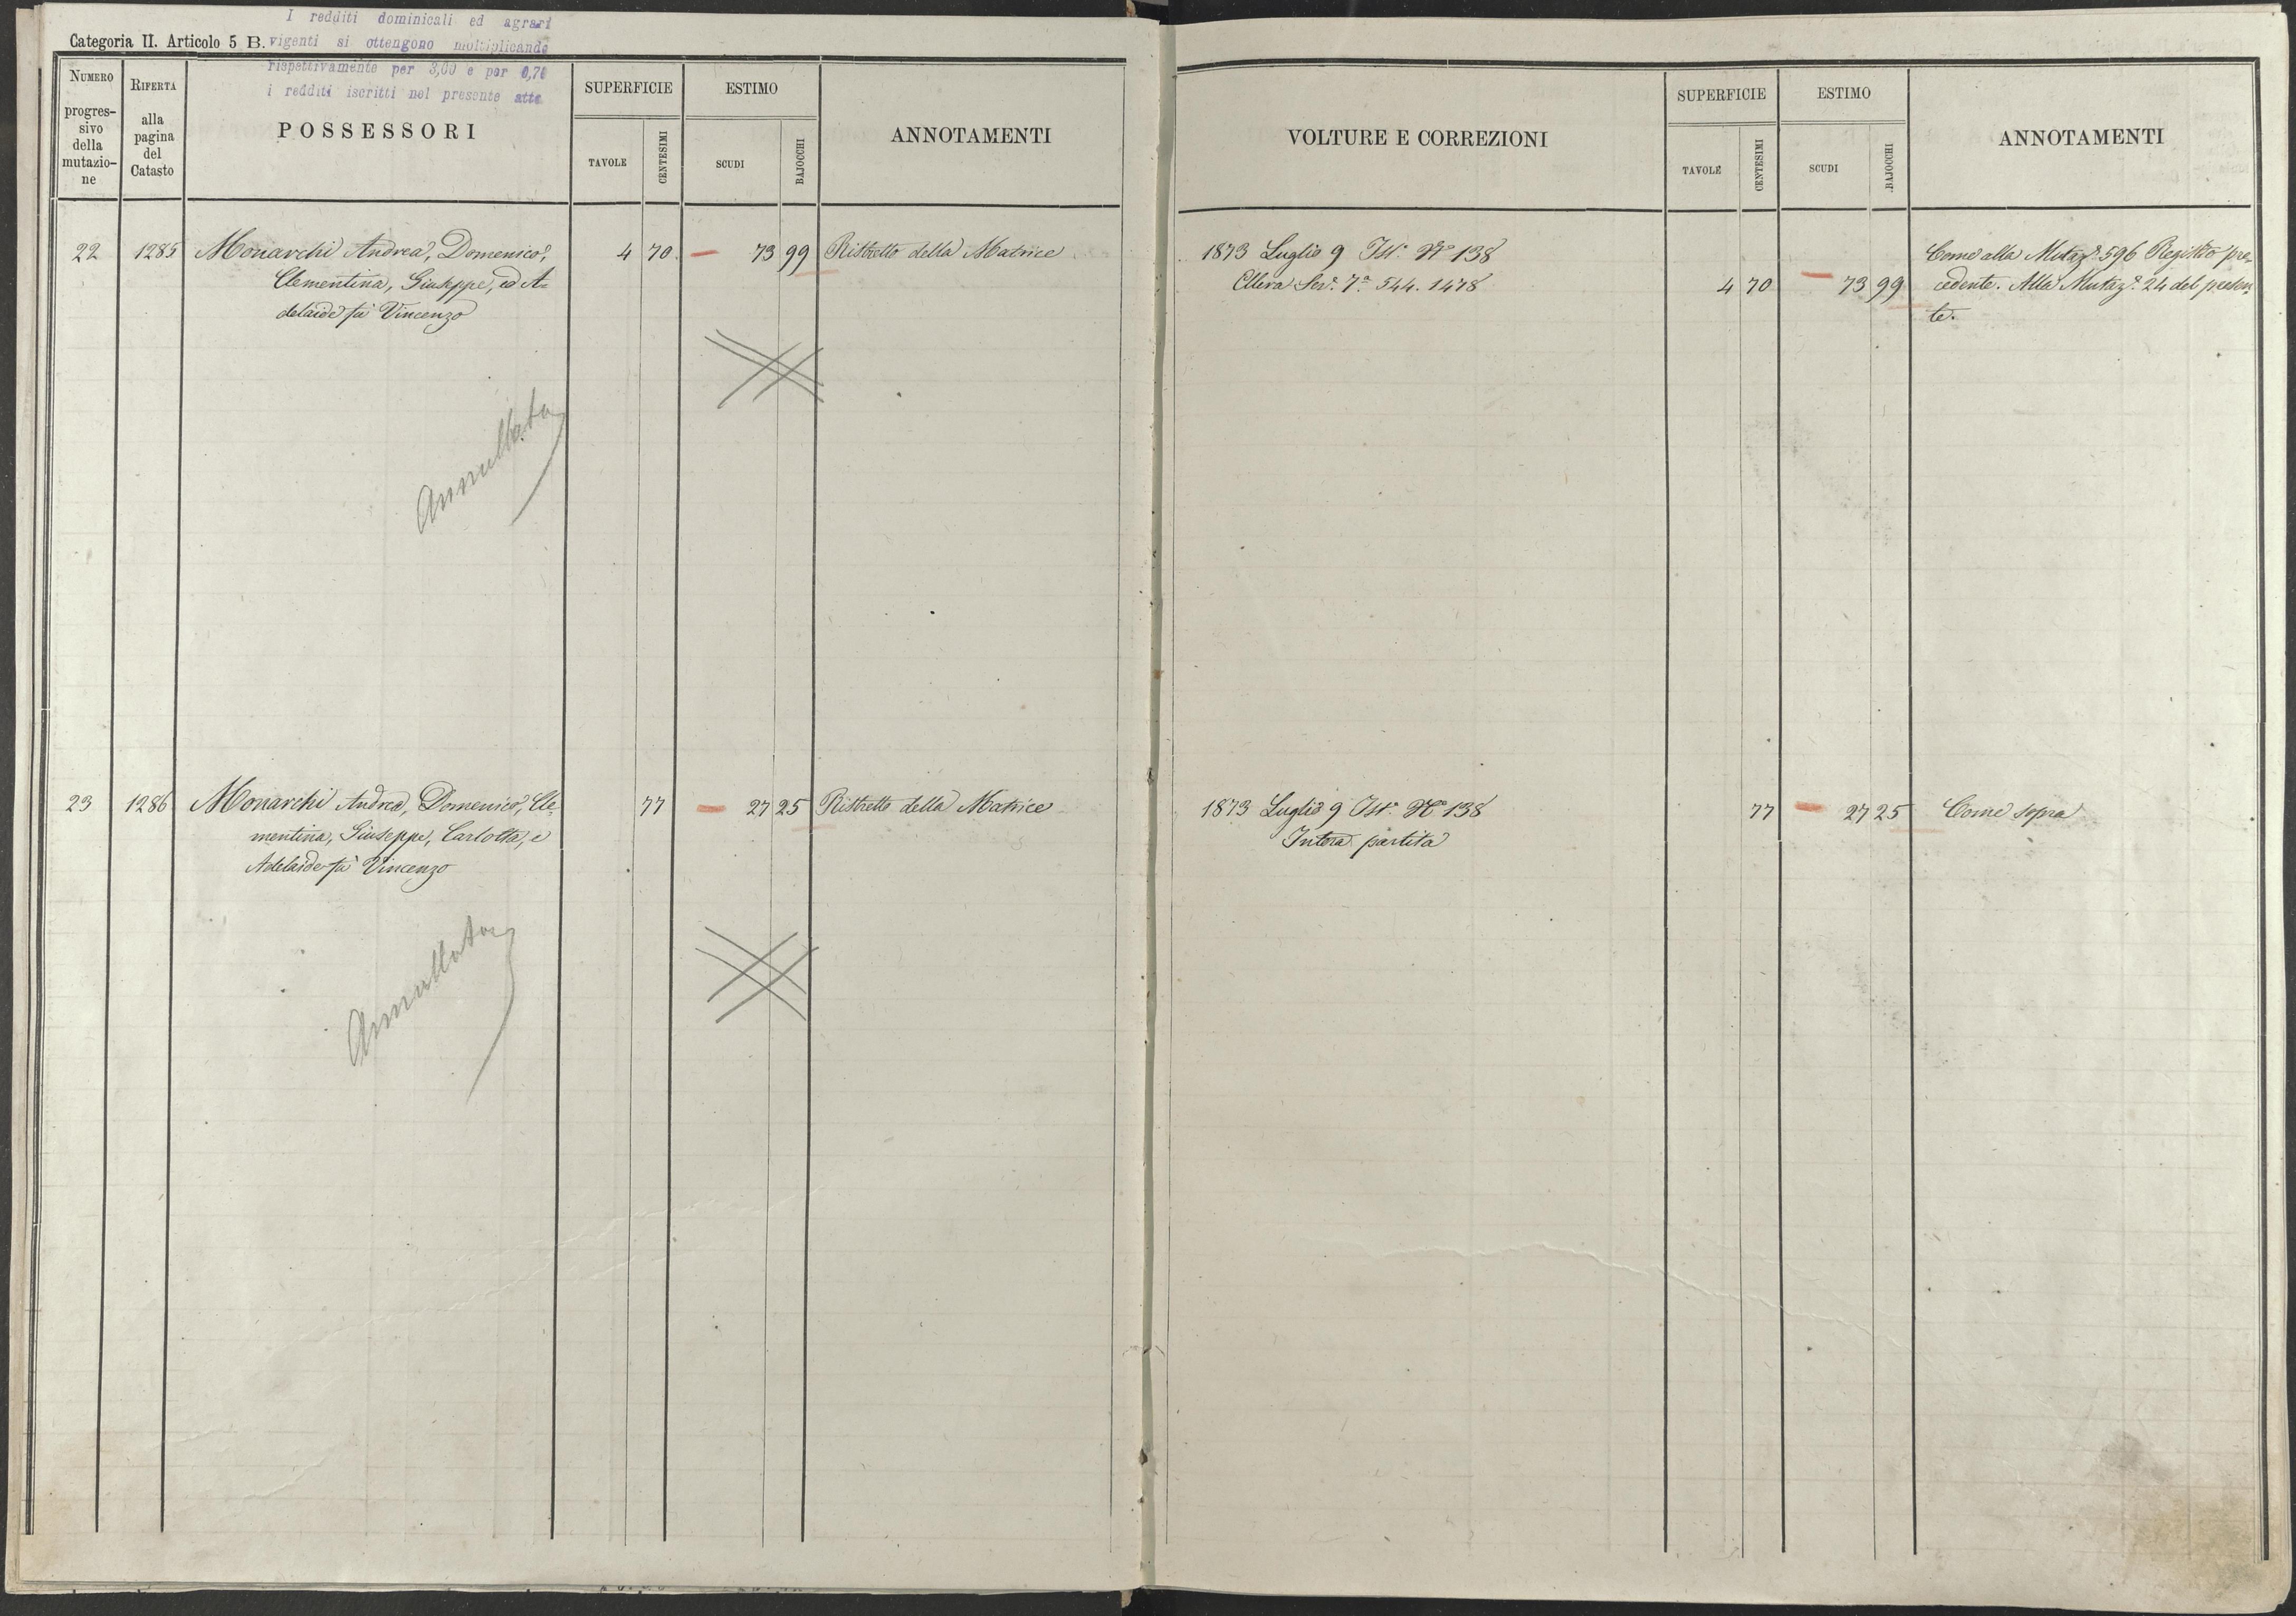 I redditi dominicali ed agrari
Categoria II. Articolo 5 B. vigenti si ottengono moltiplicando
rispettivamente per 3,00 e per 0,70
i redditi iscritti nel presente atto
NUMERO
progres-
sivo
della
mutazio-
ne
RIFERTA
alla
pagina
del
Catasto
POSSESSORI
SUPERFICIE
TAVOLE
CENTESIMI
ESTIMO
SCUDI
BAJOCCHI
ANNOTAMENTI
22 1285 Monarchi Andrea, Domenico, 4 70 73 99 Ristretto della Matrice
Clementina, Giuseppe, ed A-
delaide fu Vincenzo
Annullata
23 1286 Monarchi Andrea, Domenico, Cle- 77 27 25 Ristretto della Matrice
mentina, Giuseppe, Carlotta, e
Adelaide fu Vincenzo
Annullata
VOLTURE E CORREZIONI
SUPERFICIE
TAVOLE
CENTESIMI
ESTIMO
SCUDI
BAJOCCHI
ANNOTAMENTI
1873 Luglio 9 Ist. N.° 138 Come alla Mutaz. 596 Registro pre-
7.a 544. 1478 4 70 73 99 cedente. Alla Mutaz. 24 del presen-
te.
1873 Luglio 9 Ist. N.° 138 77 27 25 Come sopra
Intera partita